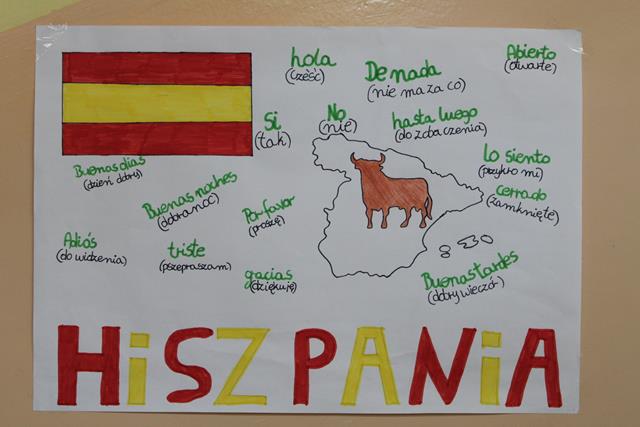 hola
(cześć)
De nada
(nie ma za co)
Abierto
(otwarte)
Si
(tak)
No
(nie)
hasta luego
(do zobaczenia)
lo siento
(przykro mi)
cerrado
(zamknięte)
Buenas dias
(dzień dobry)
Buenas noches
(dobranoc)
Por favor
(proszę)
Adiós
(do widzenia)
triste
(pszepraszam)
gracias
(dziękuję)
Buenas tardes
(dobry wieczór)
HiSZPANiA